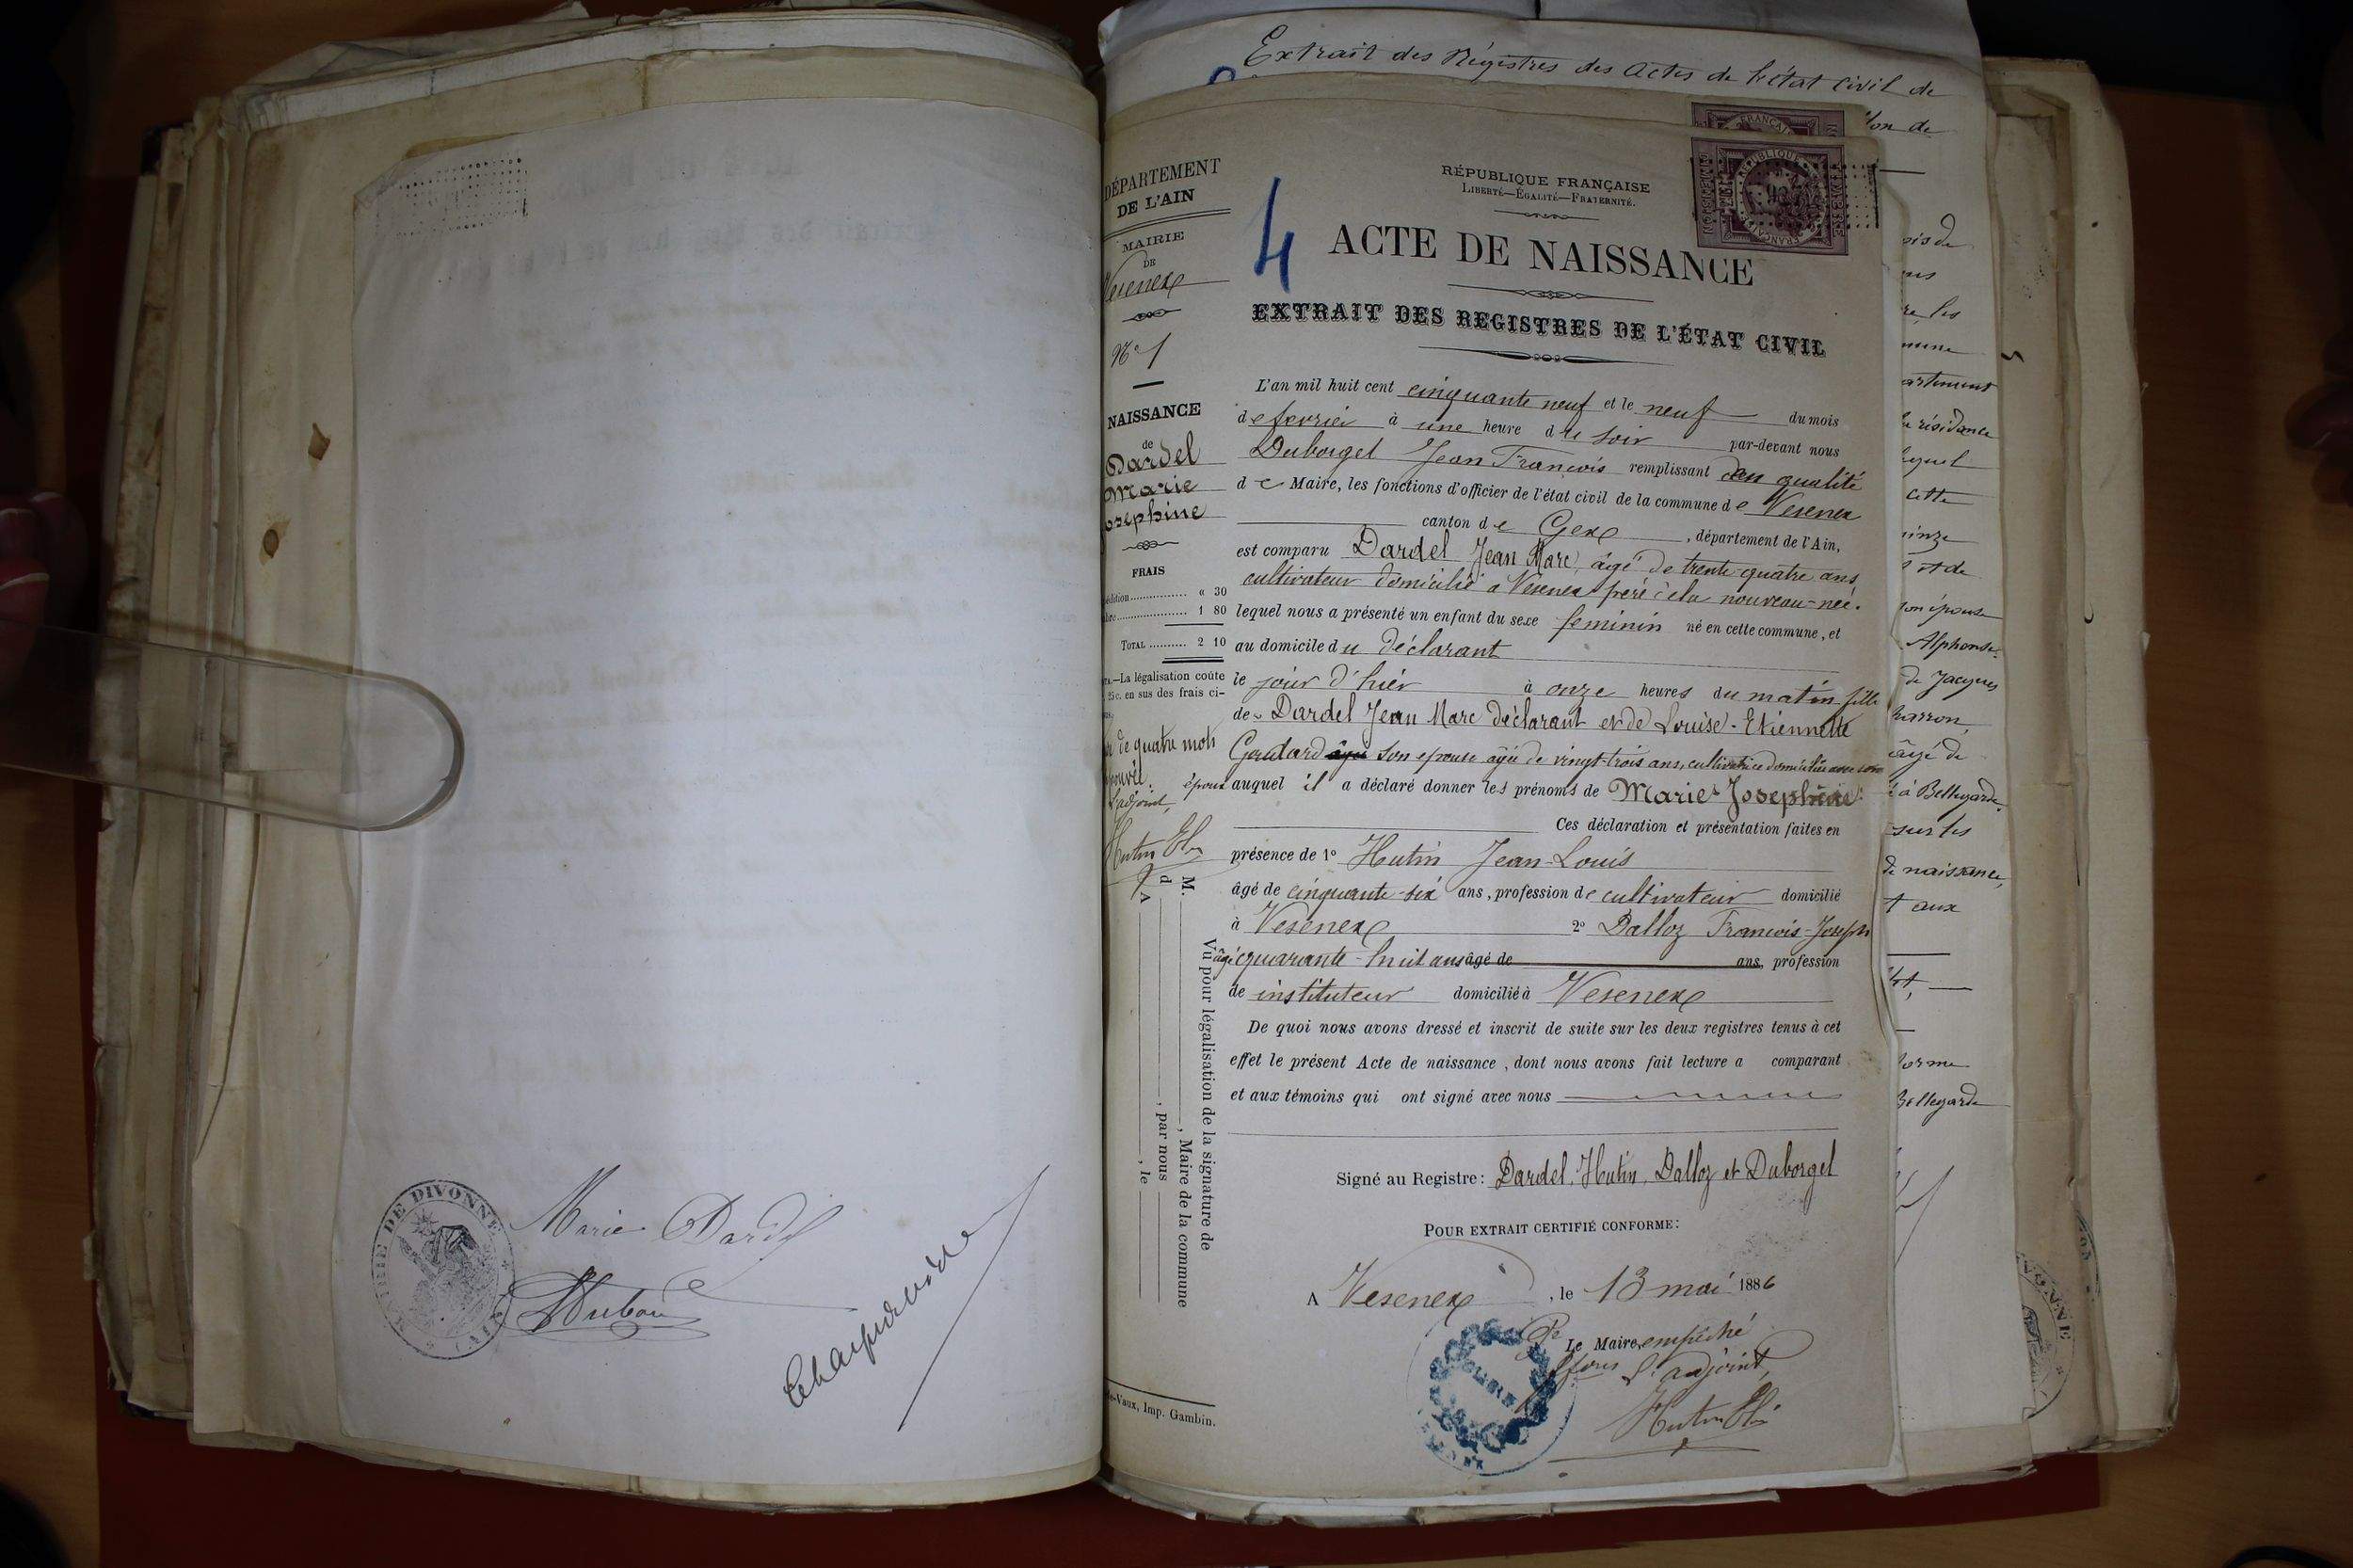 MAIRIE DE DIVONNE
(AIN)
Marie Dardel
Extrait des Régistres des Actes de l'état civil de
DÉPARTEMENT
DE L'AIN
MAIRIE
DE
Vesenex
N° 1
NAISSANCE
de
Dardel
Marie
Josephine
FRAIS
« 30
1 80
TOTAL 2 10
—La légalisation coûte
25c. en sus des frais ci-
de quatre mots
L'adjoint,
Hutin
M. , Maire de la commune
d , par nous
A , le
Vu pour légalisation de la signature de
Imp. Gambin.
4
RÉPUBLIQUE FRANÇAISE
LIBERTÉ—ÉGALITÉ—FRATERNITÉ.
ACTE DE NAISSANCE
EXTRAIT DES REGISTRES DE L'ÉTAT CIVIL
L'an mil huit cent cinquante neuf et le neuf du mois
de fevrier à une heure du soir par-devant nous
Duborgel Jean François remplissant en qualité
de Maire, les fonctions d'officier de l'état civil de la commune de Vesenex
canton de Gex, département de l'Ain,
est comparu Dardel Jean Marc, âgé de trente-quatre ans,
cultivateur domicilié à Vesenex père nouveau-née.
lequel nous a présenté un enfant du sexe feminin né en cette commune, et
au domicile du déclarant
le jour d'hier à onze heures du matin fille
de Dardel Jean Marc déclarant et de Louise-Etiennette
Goudard son epouse âgée de vingt-trois ans, cultivatrice domiciliée avec son
époux auquel il a déclaré donner les prénoms de Marie-Josephine
Ces déclaration et présentation faites en
présence de 1° Hutin Jean-Louis
âgé de cinquante-six ans, profession de cultivateur domicilié
à Vesenex 2° Dalloz François-Joseph
âgé quarante-huit ans âgé de ans, profession
de instituteur domicilié à Vesenex
De quoi nous avons dressé et inscrit de suite sur les deux registres tenus à cet
effet le présent Acte de naissance, dont nous avons fait lecture a comparant
et aux témoins qui ont signé avec nous
Signé au Registre: Dardel, Hutin, Dalloz et Duborgel
POUR EXTRAIT CERTIFIÉ CONFORME:
A Vesenex, le 13 mai 1886
Pr Le Maire empêché
L'adjoint,
Hutin
on de
ns
cette
son épouse
Alphonse
de Jacques
âgé de
à Bellegarde
sur les
de naissance,
aux
Bellegarde